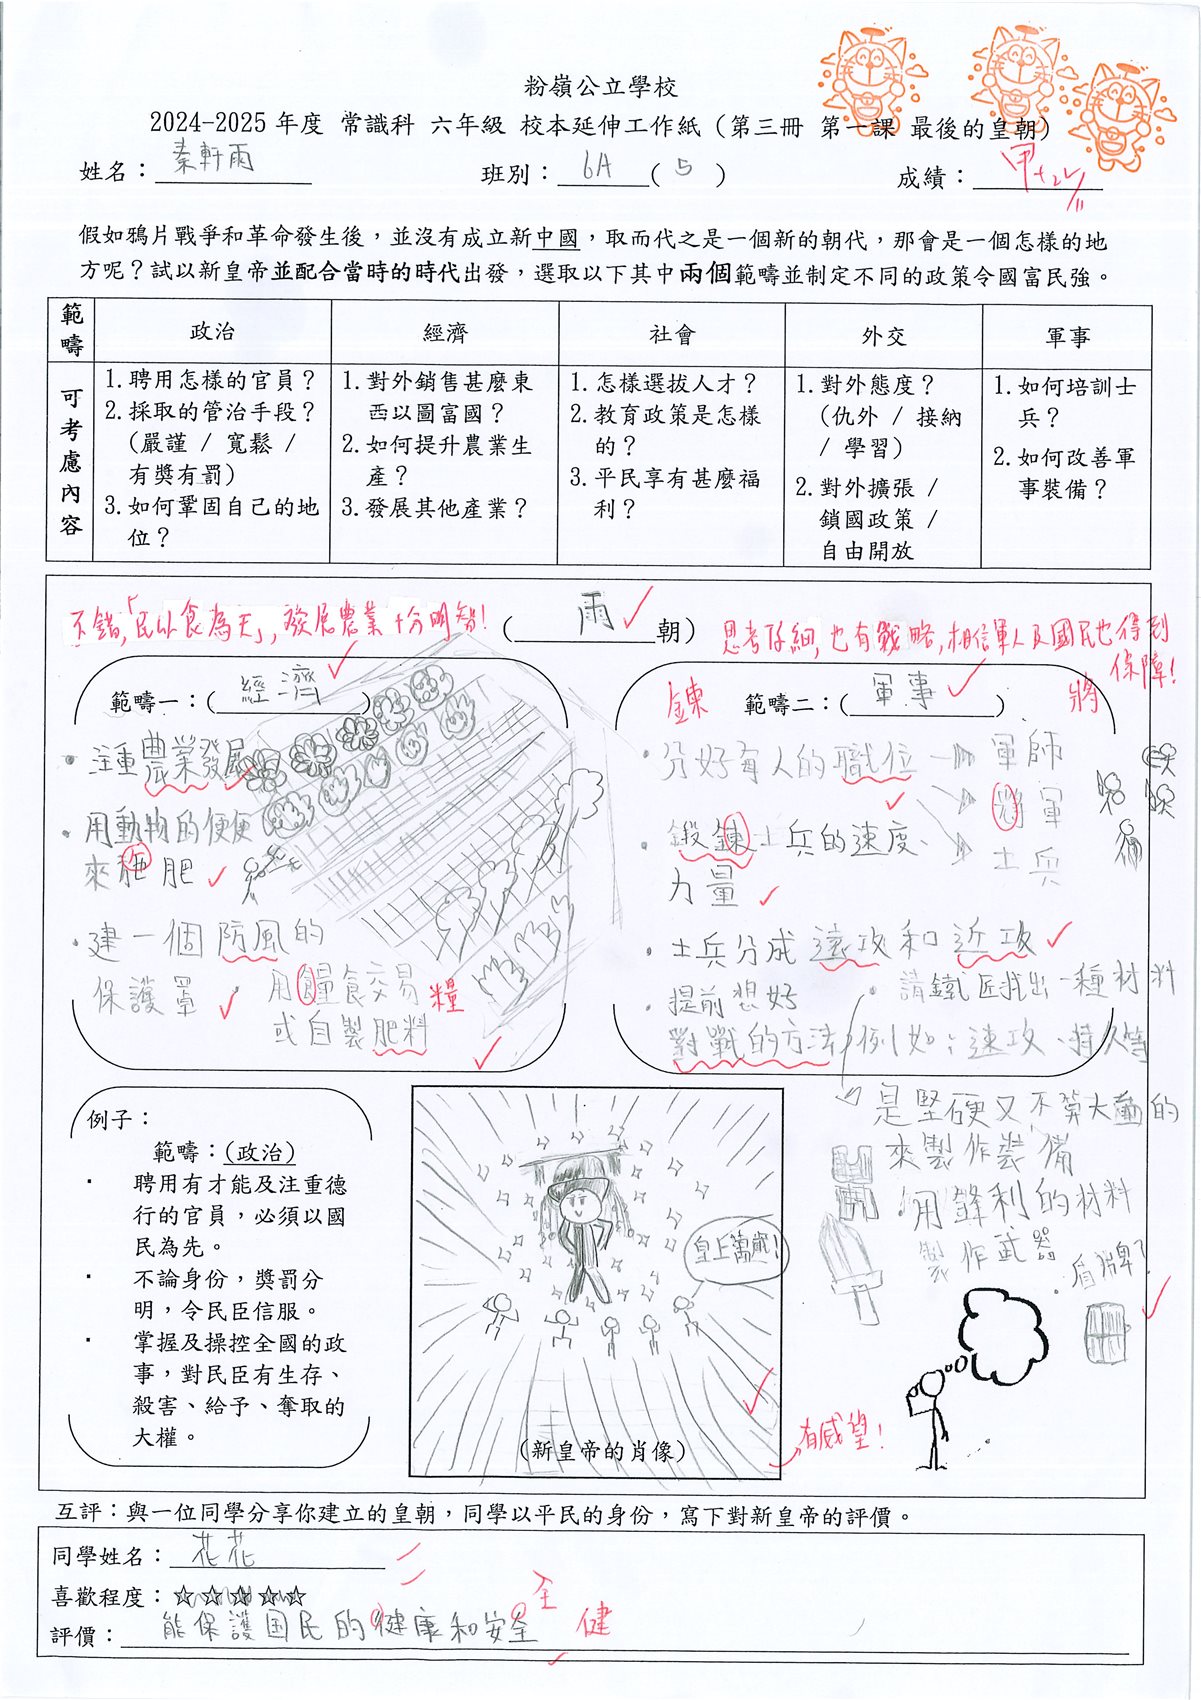 粉嶺公立學校
2024-2025 年度 常識科 六年級 校本延伸工作紙（第三冊 第一課 最後的皇朝）
姓名：秦軒雨 班別：6A（5） 成績：甲+
假如鴉片戰爭和革命發生後，並沒有成立新中國，取而代之是一個新的朝代，那會是一個怎樣的地
方呢？試以新皇帝並配合當時的時代出發，選取以下其中兩個範疇並制定不同的政策令國富民強。
範疇 政治 經濟 社會 外交 軍事
可考慮內容
1. 聘用怎樣的官員？
2. 採取的管治手段？
（嚴謹 / 寬鬆 /
有獎有罰）
3. 如何鞏固自己的地
位？
1. 對外銷售甚麼東
西以圖富國？
2. 如何提升農業生
產？
3. 發展其他產業？
1. 怎樣選拔人才？
2. 教育政策是怎樣
的？
3. 平民享有甚麼福
利？
1. 對外態度？
（仇外 / 接納
/ 學習）
2. 對外擴張 /
鎖國政策 /
自由開放
1. 如何培訓士
兵？
2. 如何改善軍
事裝備？
不錯，「民以食為天」，發展農業十分明智！
（雨朝）
思考仔細，也有戰略，相信軍人及國民也得到
保障！
範疇一：（經濟）
· 注重農業發展
· 用動物的便便
來施肥
· 建一個防風的
保護罩
· 用饣量食交易 糧
或自製肥料
鍊 範疇二：（軍事） 將
· 分好每人的職位 → 軍師
將軍
士兵
· 鍛鍊士兵的速度、
力量
· 士兵分成遠攻和近攻
· 提前想好
對戰的方法，例如：速攻、持久等
· 請鐵匠找出一種材料
是堅硬又不算大重的
來製作裝備
· 用鋒利的材料
製作武器
· 盾牌？
例子：
範疇：（政治）
· 聘用有才能及注重德
行的官員，必須以國
民為先。
· 不論身份，獎罰分
明，令民臣信服。
· 掌握及操控全國的政
事，對民臣有生存、
殺害、給予、奪取的
大權。
皇上萬歲！
（新皇帝的肖像）
有威望！
互評：與一位同學分享你建立的皇朝，同學以平民的身份，寫下對新皇帝的評價。
同學姓名：花花
喜歡程度：☆☆☆☆☆
評價：能保護国民的健康和安全
全 健